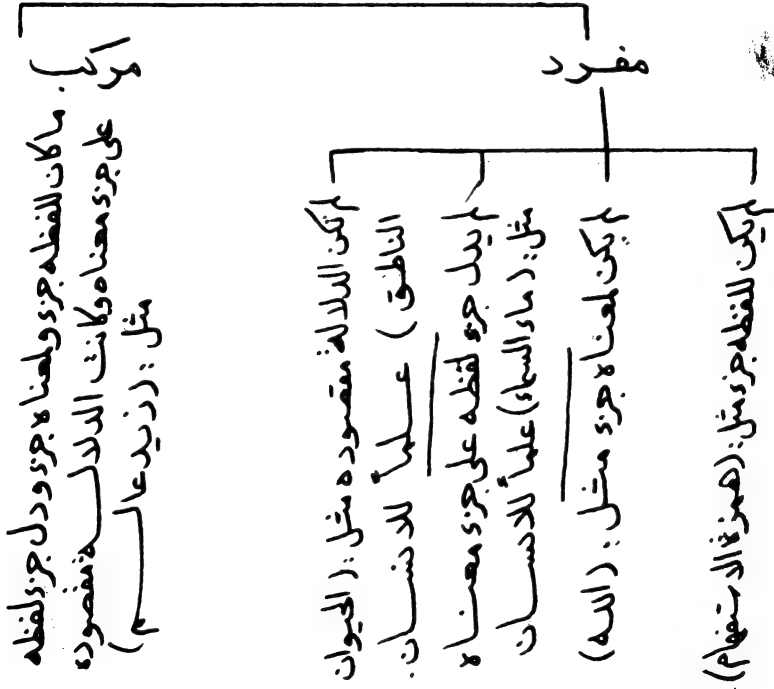 مفرد
لم يكن للفظه جزء مثل: (همزة الاستفهام)
لم يكن لمعناه جزء مثل: (الله)
لم يدل جزء لفظه على جزء معناه
مثل: (ماء السماء) علماً للانسان
لم تكن الدلالة مقصوده مثل: (الحيوان
الناطق) علماً للانسان.
مركب.
ما كان للفظه جزء ولمعناه جزء ودل جزء لفظه
على جزء معناه وكانت الدلالة مقصوده
مثل: (زيد عالم)